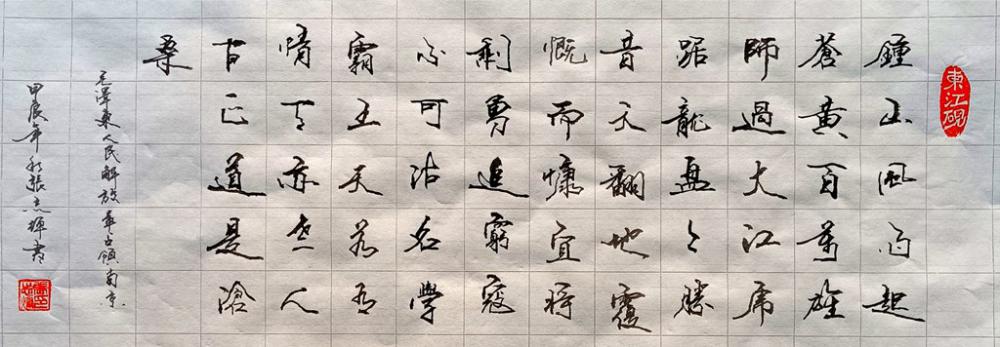 東江硯
鍾山風雨起
蒼黃百萬雄
師過大江虎
踞龍盤今勝
昔天翻地覆
慨而慷宜將
剩勇追窮寇
不可沽名學
霸王天若有
情天亦老人
間正道是滄
桑
毛澤東人民解放軍占領南京
甲辰年秋張志輝書